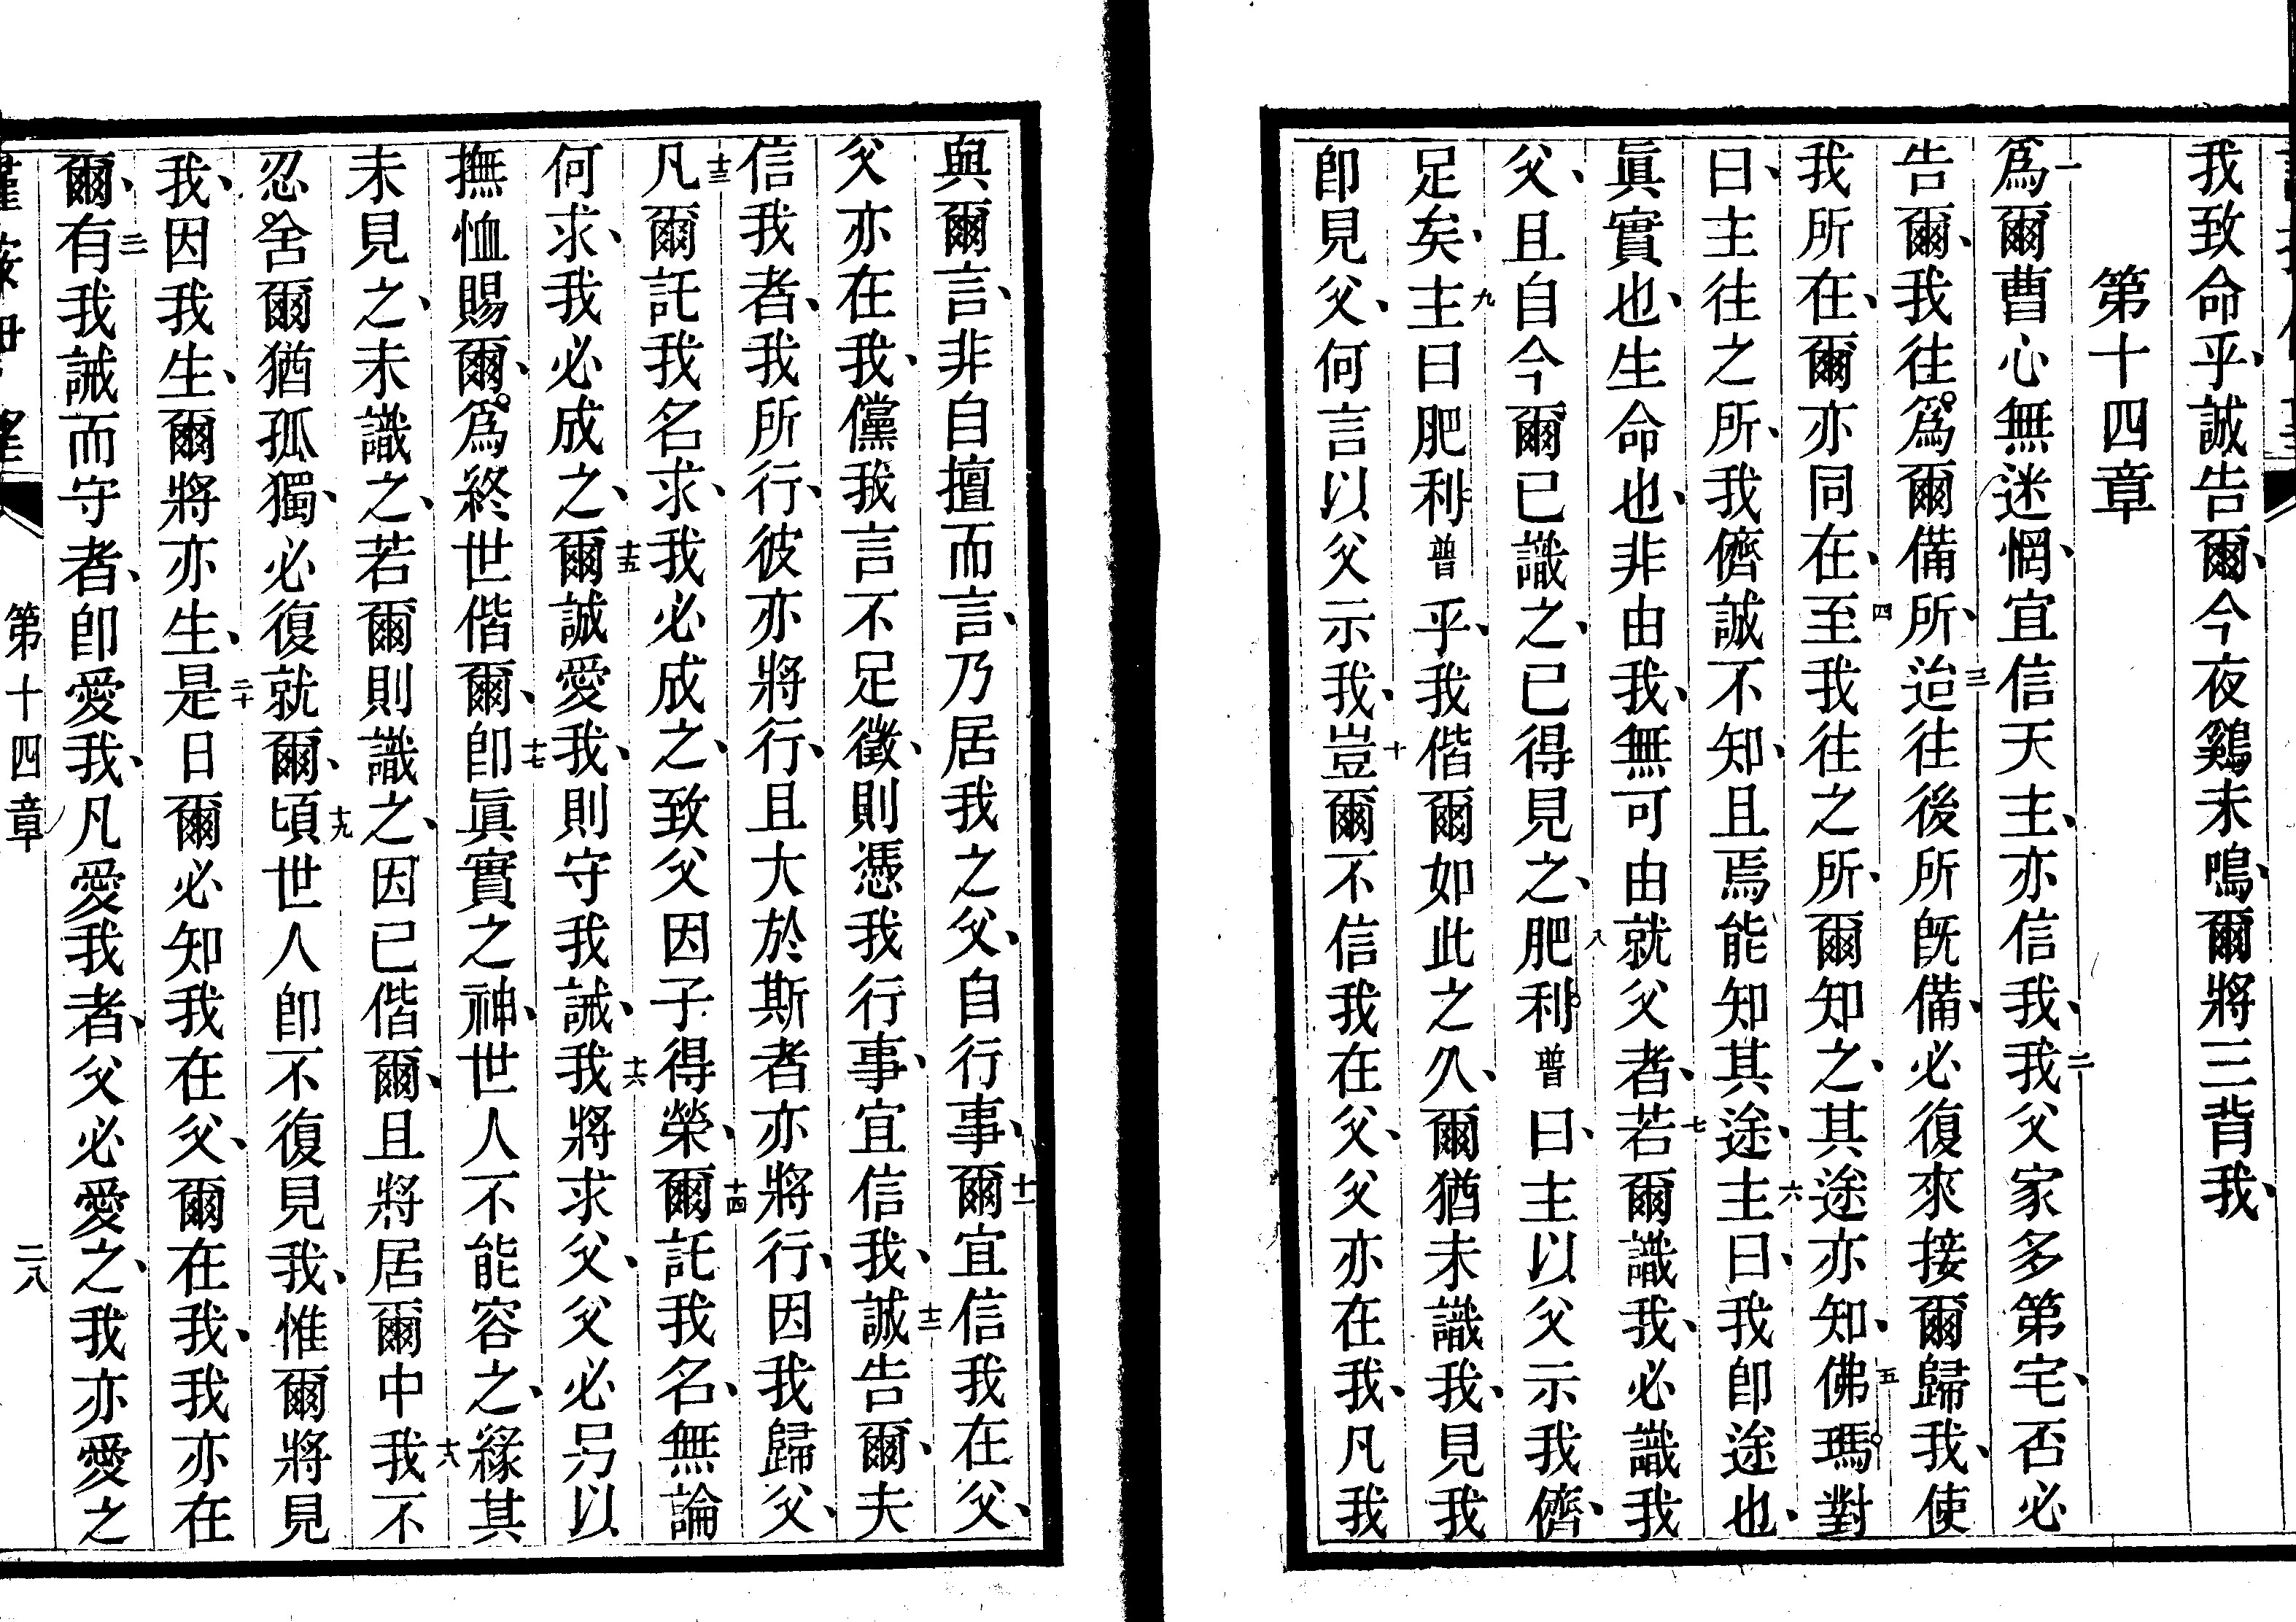 我致命乎、誠告爾、今夜鷄未鳴、爾將三背我、
第十四章
一爲爾曹心無迷惘、宜信天主、亦信我、二我父家多第宅、否必
告爾、我徃爲爾備所、三迨往後所旣備、必復來接爾歸我、使
我所在、爾亦同在、四至我往之所、爾知之、其途亦知、五佛瑪對
曰、主往之所、我儕誠不知、且焉能知其途、六主曰、我卽途也、
眞實也、生命也、非由我、無可由就父者、七若爾識我、必識我
父、且自今爾已識之、已得見之、八肥利曾曰、主以父示我儕、
足矣、九主曰肥利曾乎、我偕爾如此之久、爾猶未識我、見我
卽見父、何言以父示我、十豈爾不信我在父、父亦在我、凡我
與爾言、非自擅而言、乃居我之父、自行事、十一爾宜信我在父、
父亦在我、儻我言不足徵、則憑我行事、宜信我、十二誠告爾、夫
信我者、我所行、彼亦將行、且大於斯者亦將行、因我歸父、
十三凡爾託我名求、我必成之、致父因子得榮、十四爾託我名、無論
何求、我必成之、十五爾誠愛我、則守我誡、十六我將求父、父必另以
撫恤賜爾、爲終世偕爾、十七卽眞實之神、世人不能容之、緣其
未見之、未識之、若爾則識之、因已偕爾、且將居爾中、十八我不
忍舍爾猶孤獨、必復就爾、十九頃世人卽不復見我、惟爾將見
我、因我生、爾將亦生、二十是日爾必知我在父、爾在我、我亦在
爾、二一有我誡而守者、卽愛我、凡愛我者、父必愛之、我亦愛之
第十四章
二八